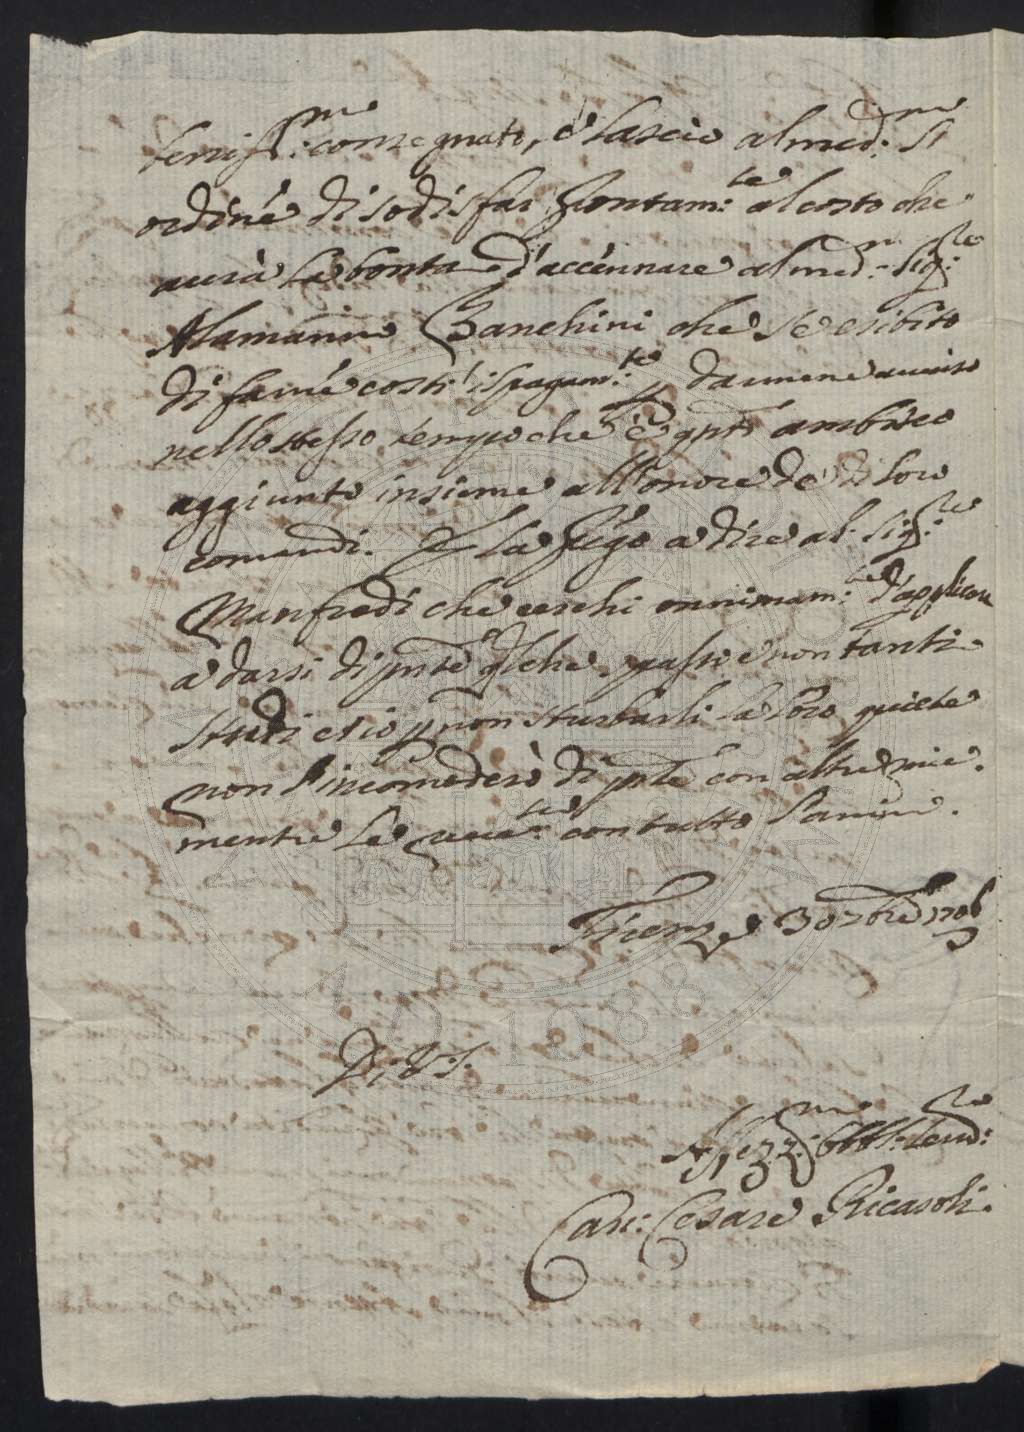 consegnato, e lascio al med:mo si
ordine di sodisfar prontam:te al costo che
avrà la bontà d'accennare al med:mo Sig:re
Alamanno Banchini che s'è esibito
di farne costì il pagam:to darmene avviso
nello stesso tempo che è qnto ambisco
aggiunto insieme all'onore de di loro
comandi. E la prego a dire al Sig:re
Manfredi che cerchi onninam:te d'applicare
à darsi di pnte qlche passo e non tanti
studi et io p non sturbarli la loro quiete
non l'incomoderò di pnte con altre mie.
mentre le con tutto l'animo.
Firenze 30 7bre 1706
D. V. S.
Affez:mo obbl: serv:re
Cav: Cesare Ricasoli.